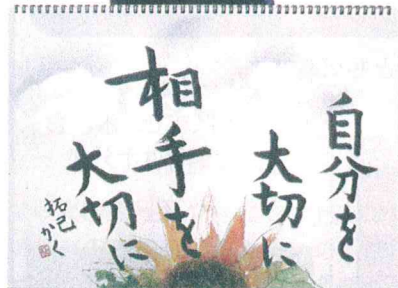 自分を
大切に
相手を
大切に
拓己かく